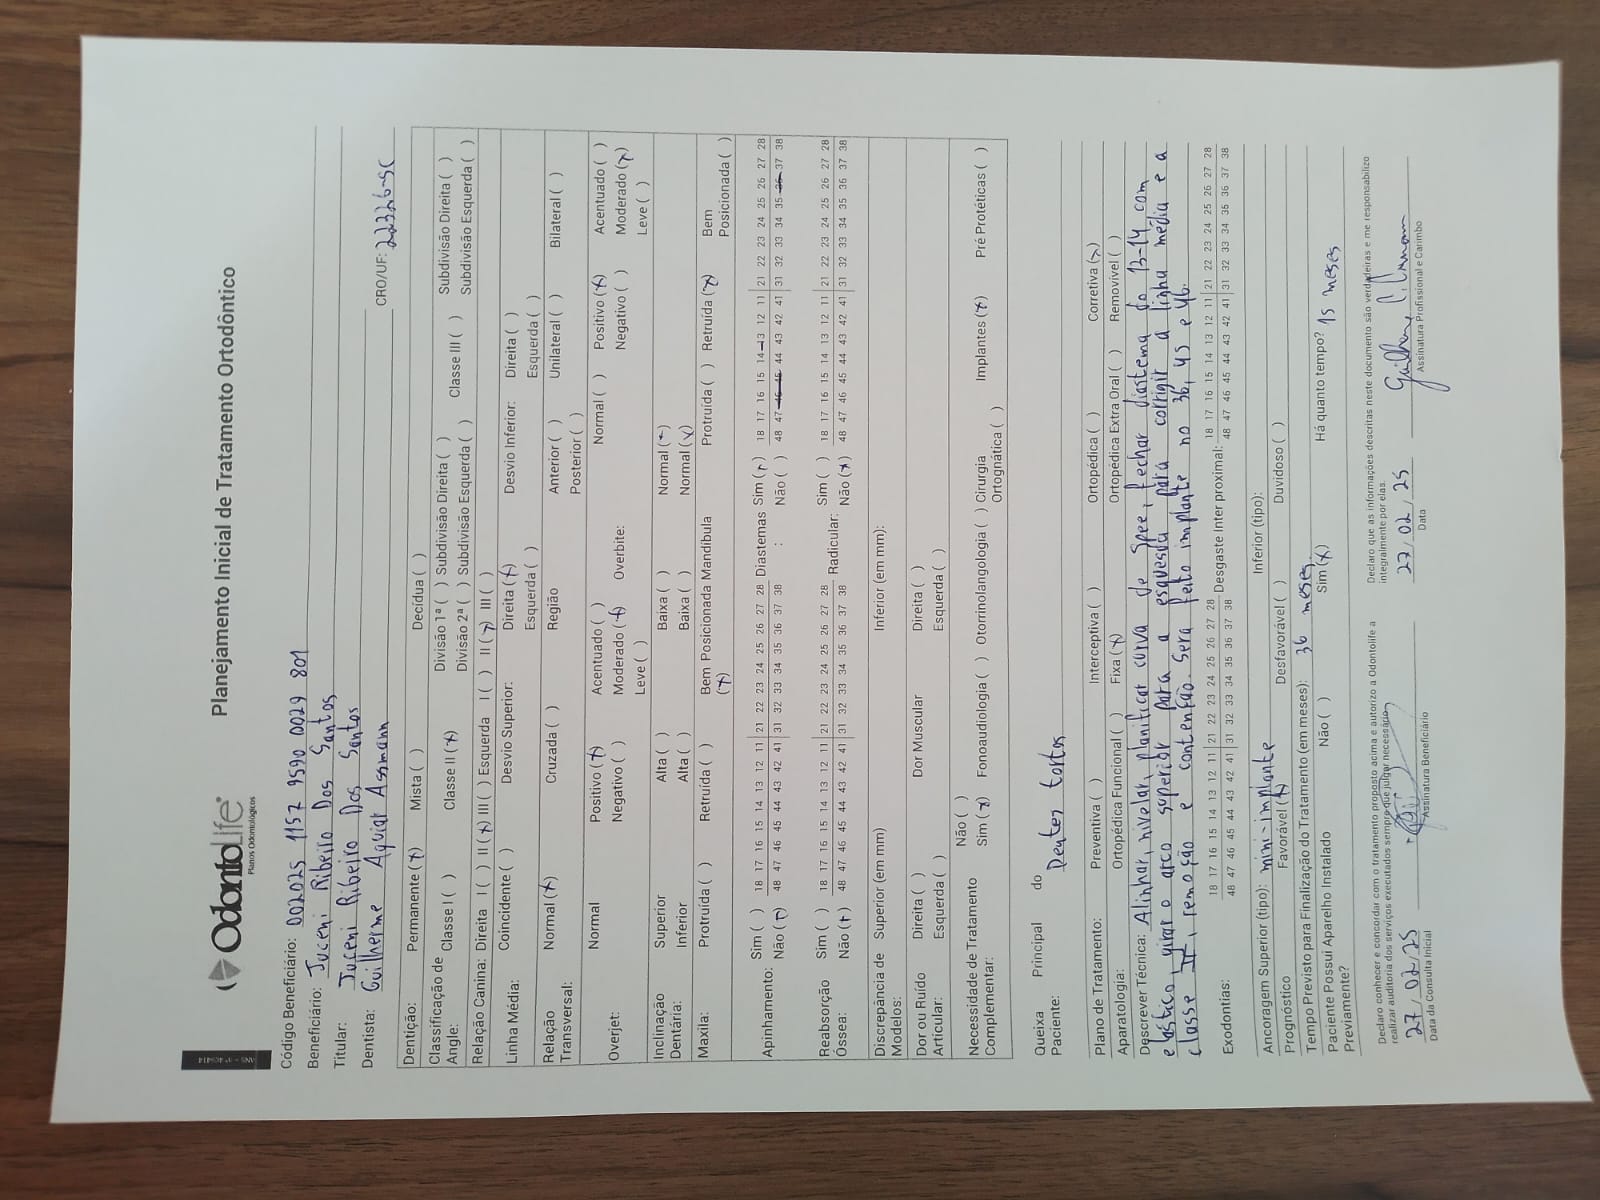 ANS - nº 40641-4
OdontoLife®
Planos Odontológicos
Planejamento Inicial de Tratamento Ortodôntico
Código Beneficiário: 002025 1157 9590 0029 801
Beneficiário: Juceni Ribeiro Dos Santos
Titular: Juceni Ribeiro Dos Santos
Dentista: Guilherme Aguiar Assmann CRO/UF: 22326-SC
Dentição: Permanente (x) Mista ( ) Decídua ( )
Classificação de Angle: Classe I ( ) Classe II (x) Divisão 1ª ( ) Subdivisão Direita ( ) Classe III ( ) Subdivisão Direita ( )
Divisão 2ª ( ) Subdivisão Esquerda ( ) Subdivisão Esquerda ( )
Relação Canina: Direita I ( ) II (x) III ( ) Esquerda I ( ) II (x) III ( )
Linha Média: Coincidente ( ) Desvio Superior: Direita (x) Desvio Inferior: Direita ( )
Esquerda ( ) Esquerda ( )
Relação Transversal: Normal (x) Cruzada ( ) Região Anterior ( ) Unilateral ( ) Bilateral ( )
Posterior ( )
Overjet: Normal Positivo (x) Acentuado ( ) Overbite: Normal ( ) Positivo (x) Acentuado ( )
Negativo ( ) Moderado (x) Negativo ( ) Moderado (x)
Leve ( ) Leve ( )
Inclinação Superior Alta ( ) Baixa ( ) Normal (x)
Dentária: Inferior Alta ( ) Baixa ( ) Normal (x)
Maxila: Protruída ( ) Retruída ( ) Bem Posicionada (x) Mandíbula Protruída ( ) Retruída (x) Bem Posicionada ( )
Apinhamento: Sim ( ) 18 17 16 15 14 13 12 11 | 21 22 23 24 25 26 27 28 Diastemas Sim (x) 18 17 16 15 14 13 12 11 | 21 22 23 24 25 26 27 28
Não (x) 48 47 46 45 44 43 42 41 | 31 32 33 34 35 36 37 38 : Não ( ) 48 47 46 45 44 43 42 41 | 31 32 33 34 35 36 37 38
Reabsorção Sim ( ) 18 17 16 15 14 13 12 11 | 21 22 23 24 25 26 27 28 Radicular: Sim ( ) 18 17 16 15 14 13 12 11 | 21 22 23 24 25 26 27 28
Óssea: Não (x) 48 47 46 45 44 43 42 41 | 31 32 33 34 35 36 37 38 Não (x) 48 47 46 45 44 43 42 41 | 31 32 33 34 35 36 37 38
Discrepancia de Modelos: Superior (em mm) Inferior (em mm):
Dor ou Ruído Direita ( ) Dor Muscular Direita ( )
Articular: Esquerda ( ) Esquerda ( )
Necessidade de Tratamento Não ( )
Complementar: Sim (x) Fonoaudiologia ( ) Otorrinolangologia ( ) Cirurgia Ortognática ( ) Implantes (x) Pré Protéticas ( )
Queixa Principal do
Paciente: Dentes tortos
Plano de Tratamento: Preventiva ( ) Interceptiva ( ) Ortopédica ( ) Corretiva (x)
Aparatologia: Ortopédica Funcional ( ) Fixa (x) Ortopédica Extra Oral ( ) Removível ( )
Descrever Técnica: Alinhar, nivelar, planificar curva de Spee, fechar diastema do 13-14 com
elástico, girar o arco superior para a esquerda para corrigir a linha média e a
classe II, remoção e contenção. Sera feito implante no 36, 45 e 46.
Exodontias: 18 17 16 15 14 13 12 11 | 21 22 23 24 25 26 27 28 Desgaste Inter proximal: 18 17 16 15 14 13 12 11 | 21 22 23 24 25 26 27 28
48 47 46 45 44 43 42 41 | 31 32 33 34 35 36 37 38 48 47 46 45 44 43 42 41 | 31 32 33 34 35 36 37 38
Ancoragem Superior (tipo): mini-implante Inferior (tipo):
Prognóstico Favorável (x) Desfavorável ( ) Duvidoso ( )
Tempo Previsto para Finalização do Tratamento (em meses): 36 meses
Paciente Possui Aparelho Instalado Não ( ) Sim (x) Há quanto tempo? 15 meses
Previamente?
Declaro conhecer e concordar com o tratamento proposto acima e autorizo a Odontolife a
realizar auditoria dos serviços executados sempre que julgar necessário
Declaro que as informações descritas neste documento são verdadeiras e me responsabilizo
integralmente por elas.
27/02/25
Data da Consulta Inicial
Assinatura Beneficiário
27/02/25
Data
Assinatura Profissional e Carimbo